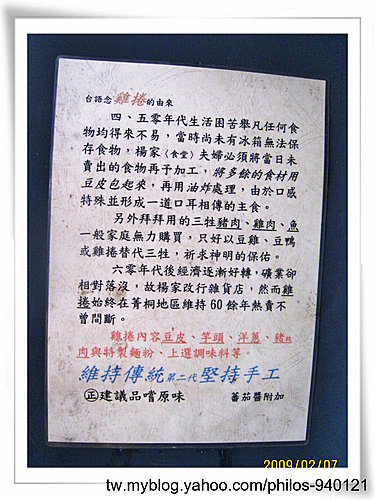 台語念雞捲的由來
四、五零年代生活困苦舉凡任何食
物均得來不易,當時尚未有冰箱無法保
存食物,楊家《食堂》夫婦必須將當日未
賣出的食物再予加工,將多餘的食材用
豆皮包起來,再用油炸處理,由於口感
特殊並形成一道口耳相傳的主食。
另外拜拜用的三牲豬肉、雞肉、魚
一般家庭無力購買,只好以豆雞、豆鴨
或雞捲替代三牲,祈求神明的保佑。
六零年代後經濟逐漸好轉,礦業卻
相對落沒,故楊家改行雜貨店,然而雞
捲始終在菁桐地區維持60餘年熱賣不
曾間斷。
雞捲內容豆皮、芋頭、洋蔥、豬
肉與特製麵粉、上選調味料等。
維持傳統第二代堅持手工
正建議品嚐原味 蕃茄醬附加
2009/02/07
tw.myblog.yahoo.com/philos-940121